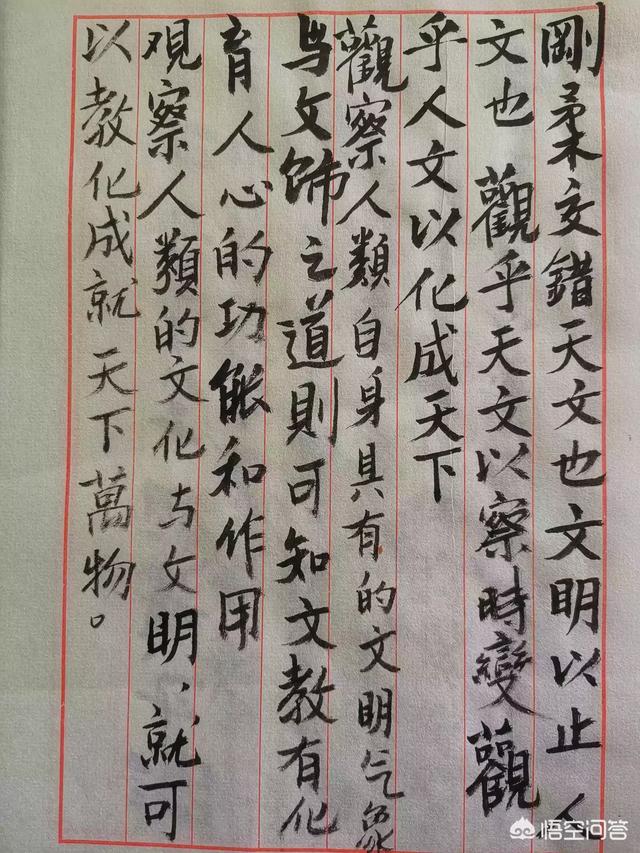 剛柔交錯天文也文明以止人
文也 觀乎天文以察時變觀
乎人文以化成天下
觀察人類自身具有的文明气象
与文饰之道則可知文教有化
育人心的功能和作用
观察人類的文化与文明、就可
以教化成就天下萬物。
悟空问答